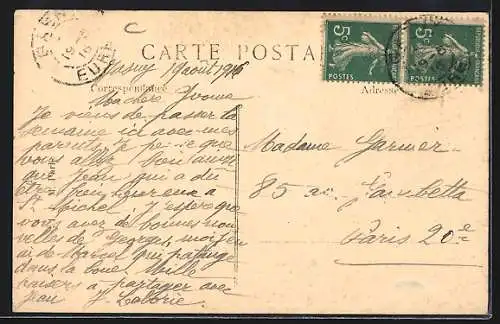 CARTE POSTALE
Gasny 19 août 1916
Correspondance
Adresse
Ma chère Yvonne
Je viens de passer la
semaine ici avec mes
parents, je pense que
vous allez bien ainsi
que Jean qui a dû
être bien heureux à
St Michel. J'espère que
vous avez de bonnes nou
velles de Georges, moi j'en
ai de Marcel qui patauge
dans la boue. Mille
baisers à partager avec
Jean
Y. Laborie
Madame Garnier
85 av. Gambetta
Paris 20e
5c
POSTES
5c
POSTES
EURE
19
16